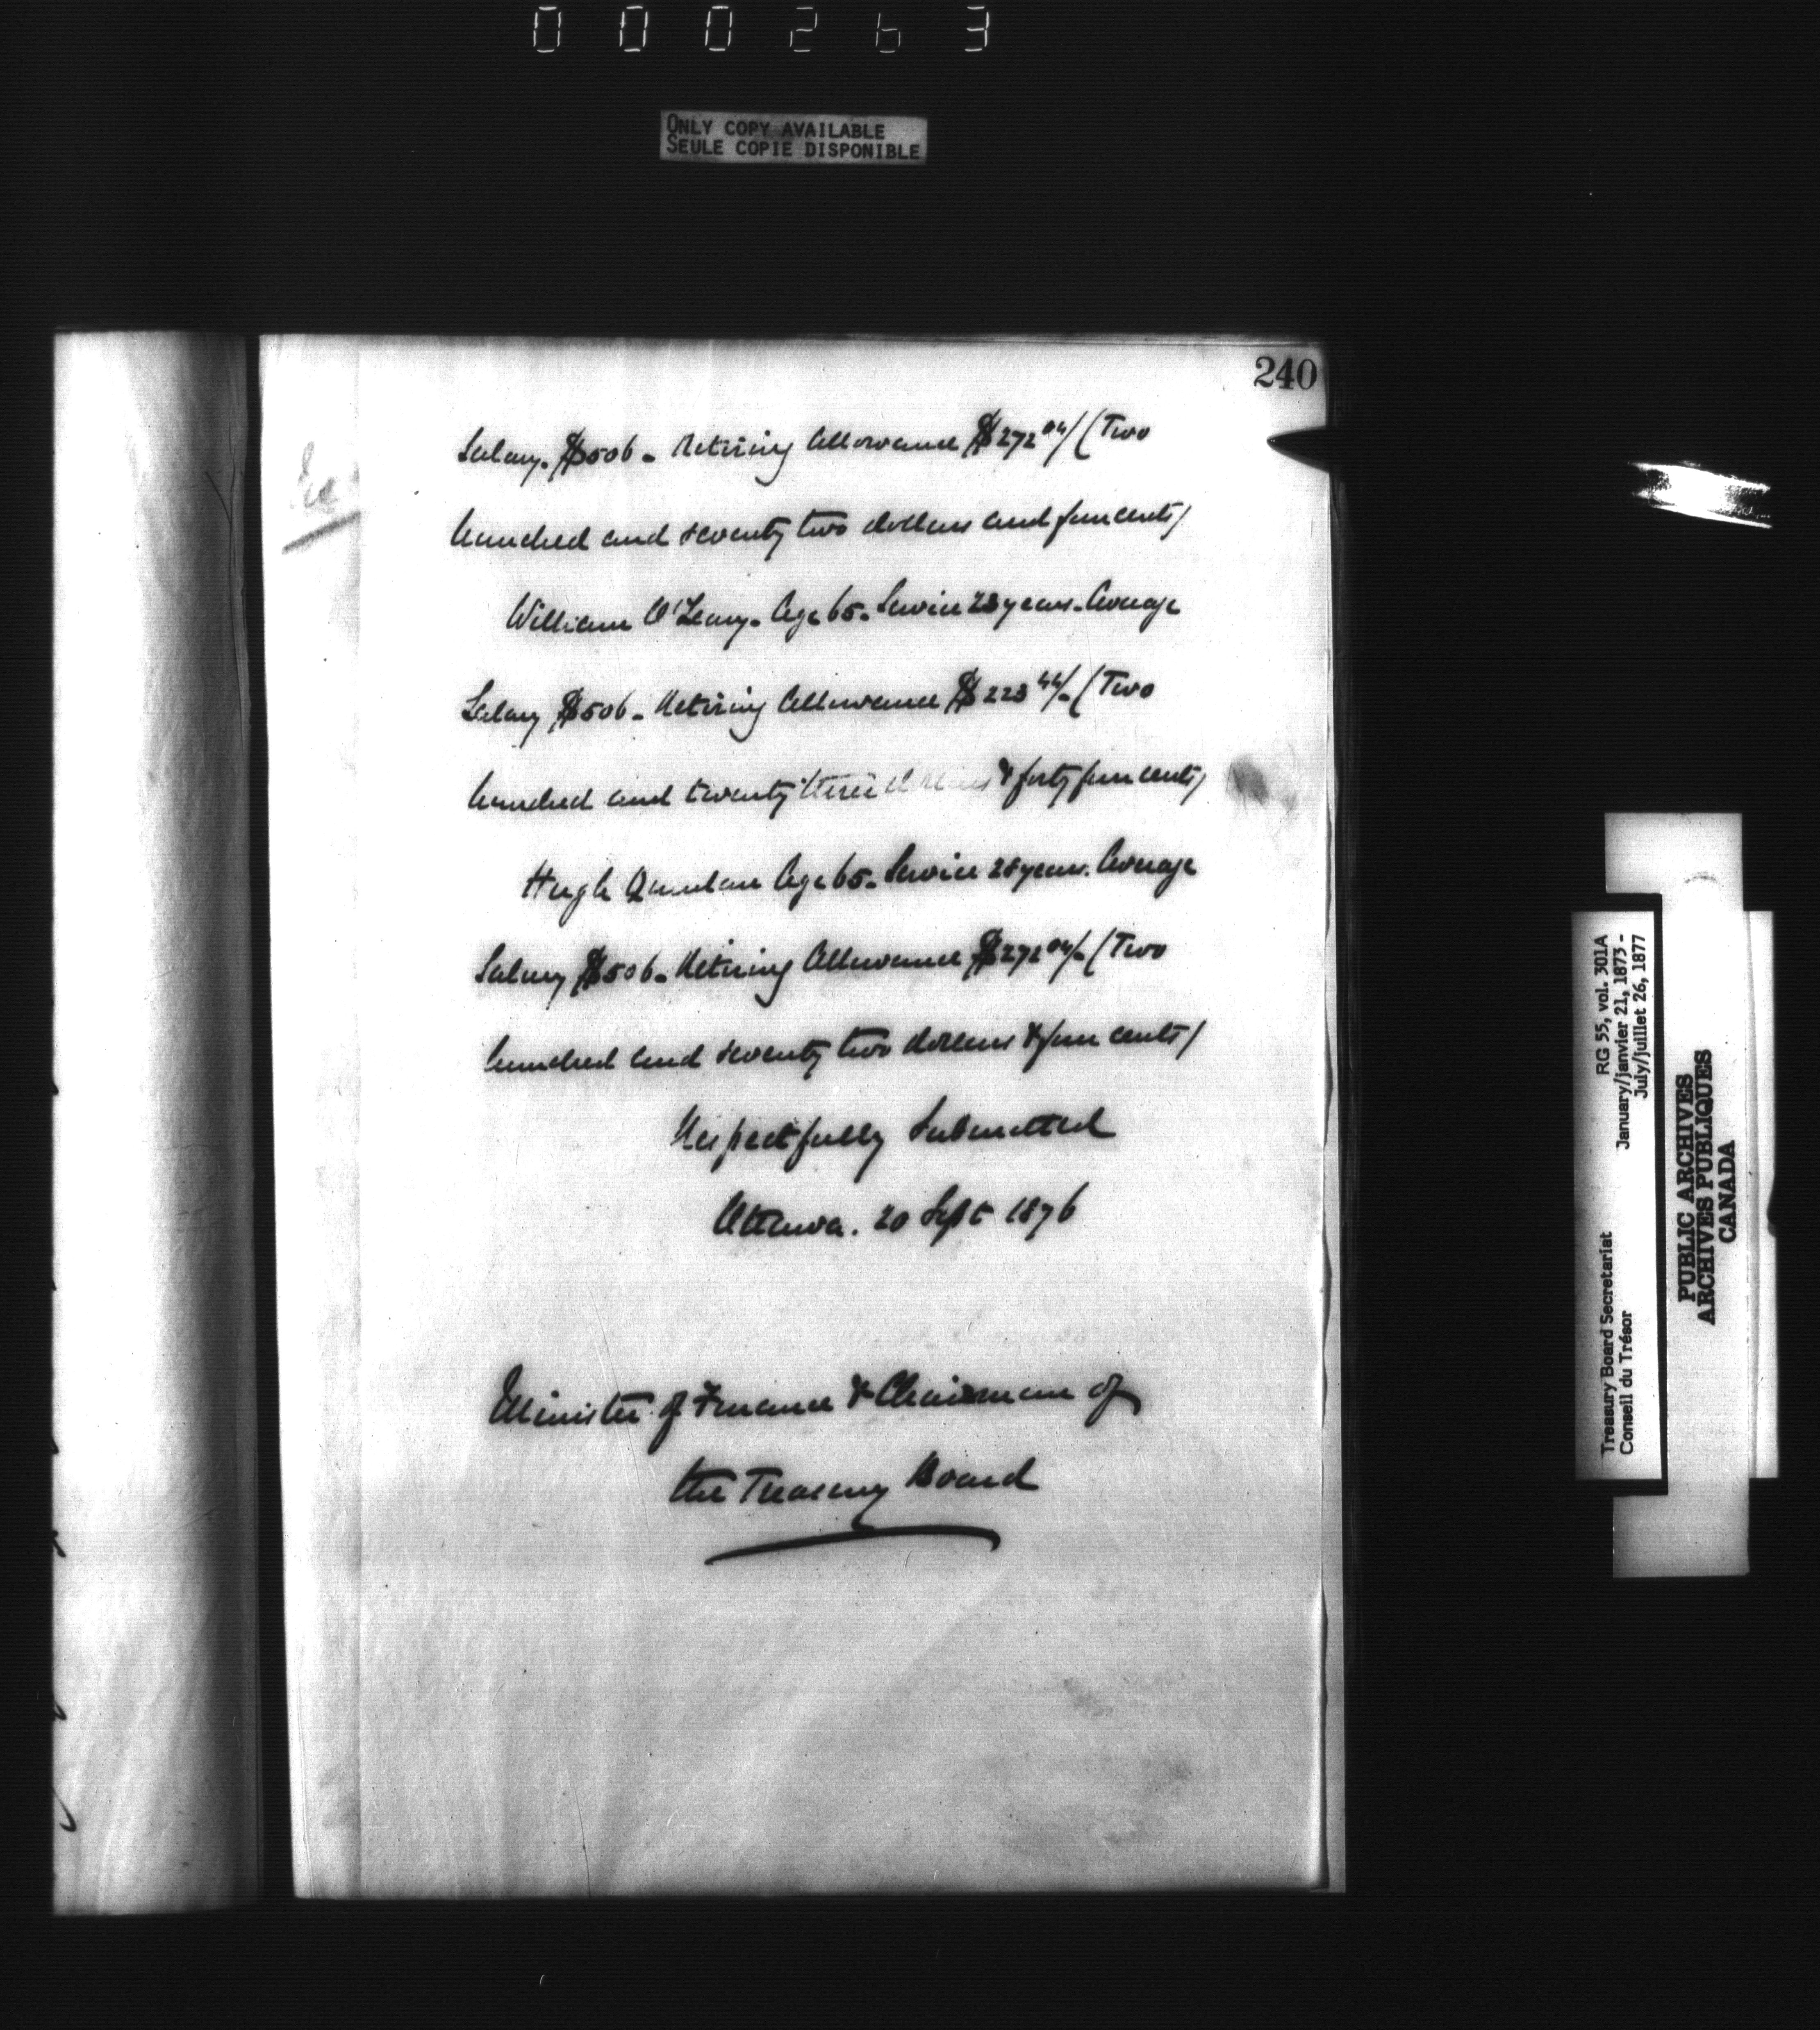 000263
ONLY COPY AVAILABLE
SEULE COPIE DISPONIBLE
240
Salary. $506 - Retiring Allowance $272 04/ (Two
hundred and seventy two dollars and four cents/
William O'Leary - Age 65 - Service 23 years - Average
Salary $506 - Retiring Allowance $223 44/- (Two
hundred and twenty three dollars & forty four cents/
Hugh Quinlan Age 65 - Service 28 years. Average
Salary $506 - Retiring Allowance $272 04/- (Two
hundred and seventy two dollars & four cents/
Respectfully Submitted
Ottawa. 20 Sept 1876
Minister of Finance & Chairman of
the Treasury Board
Treasury Board Secretariat RG 55, vol. 301A
Conseil du Trésor January/janvier 21, 1873 -
July/juillet 26, 1877
PUBLIC ARCHIVES
ARCHIVES PUBLIQUES
CANADA